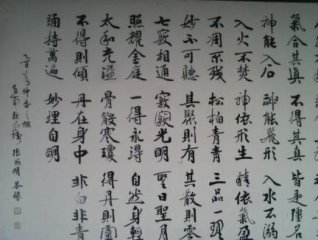 氣合其真 不得其真 皆是强名
神能入石 神能飛形 入水不溺
入火不焚 神依形生 精依氣盈
不凋不殘 松柏青青 三品一理
妙不可聽 其聚則有 其散則零
七竅相通 竅竅光明 聖日聖月
照耀金庭 一得永得 自然身輕
太和充溢 骨散寒瓊 得丹則靈
不得則傾 丹在身中 非白非青
誦持萬遍 妙理自明